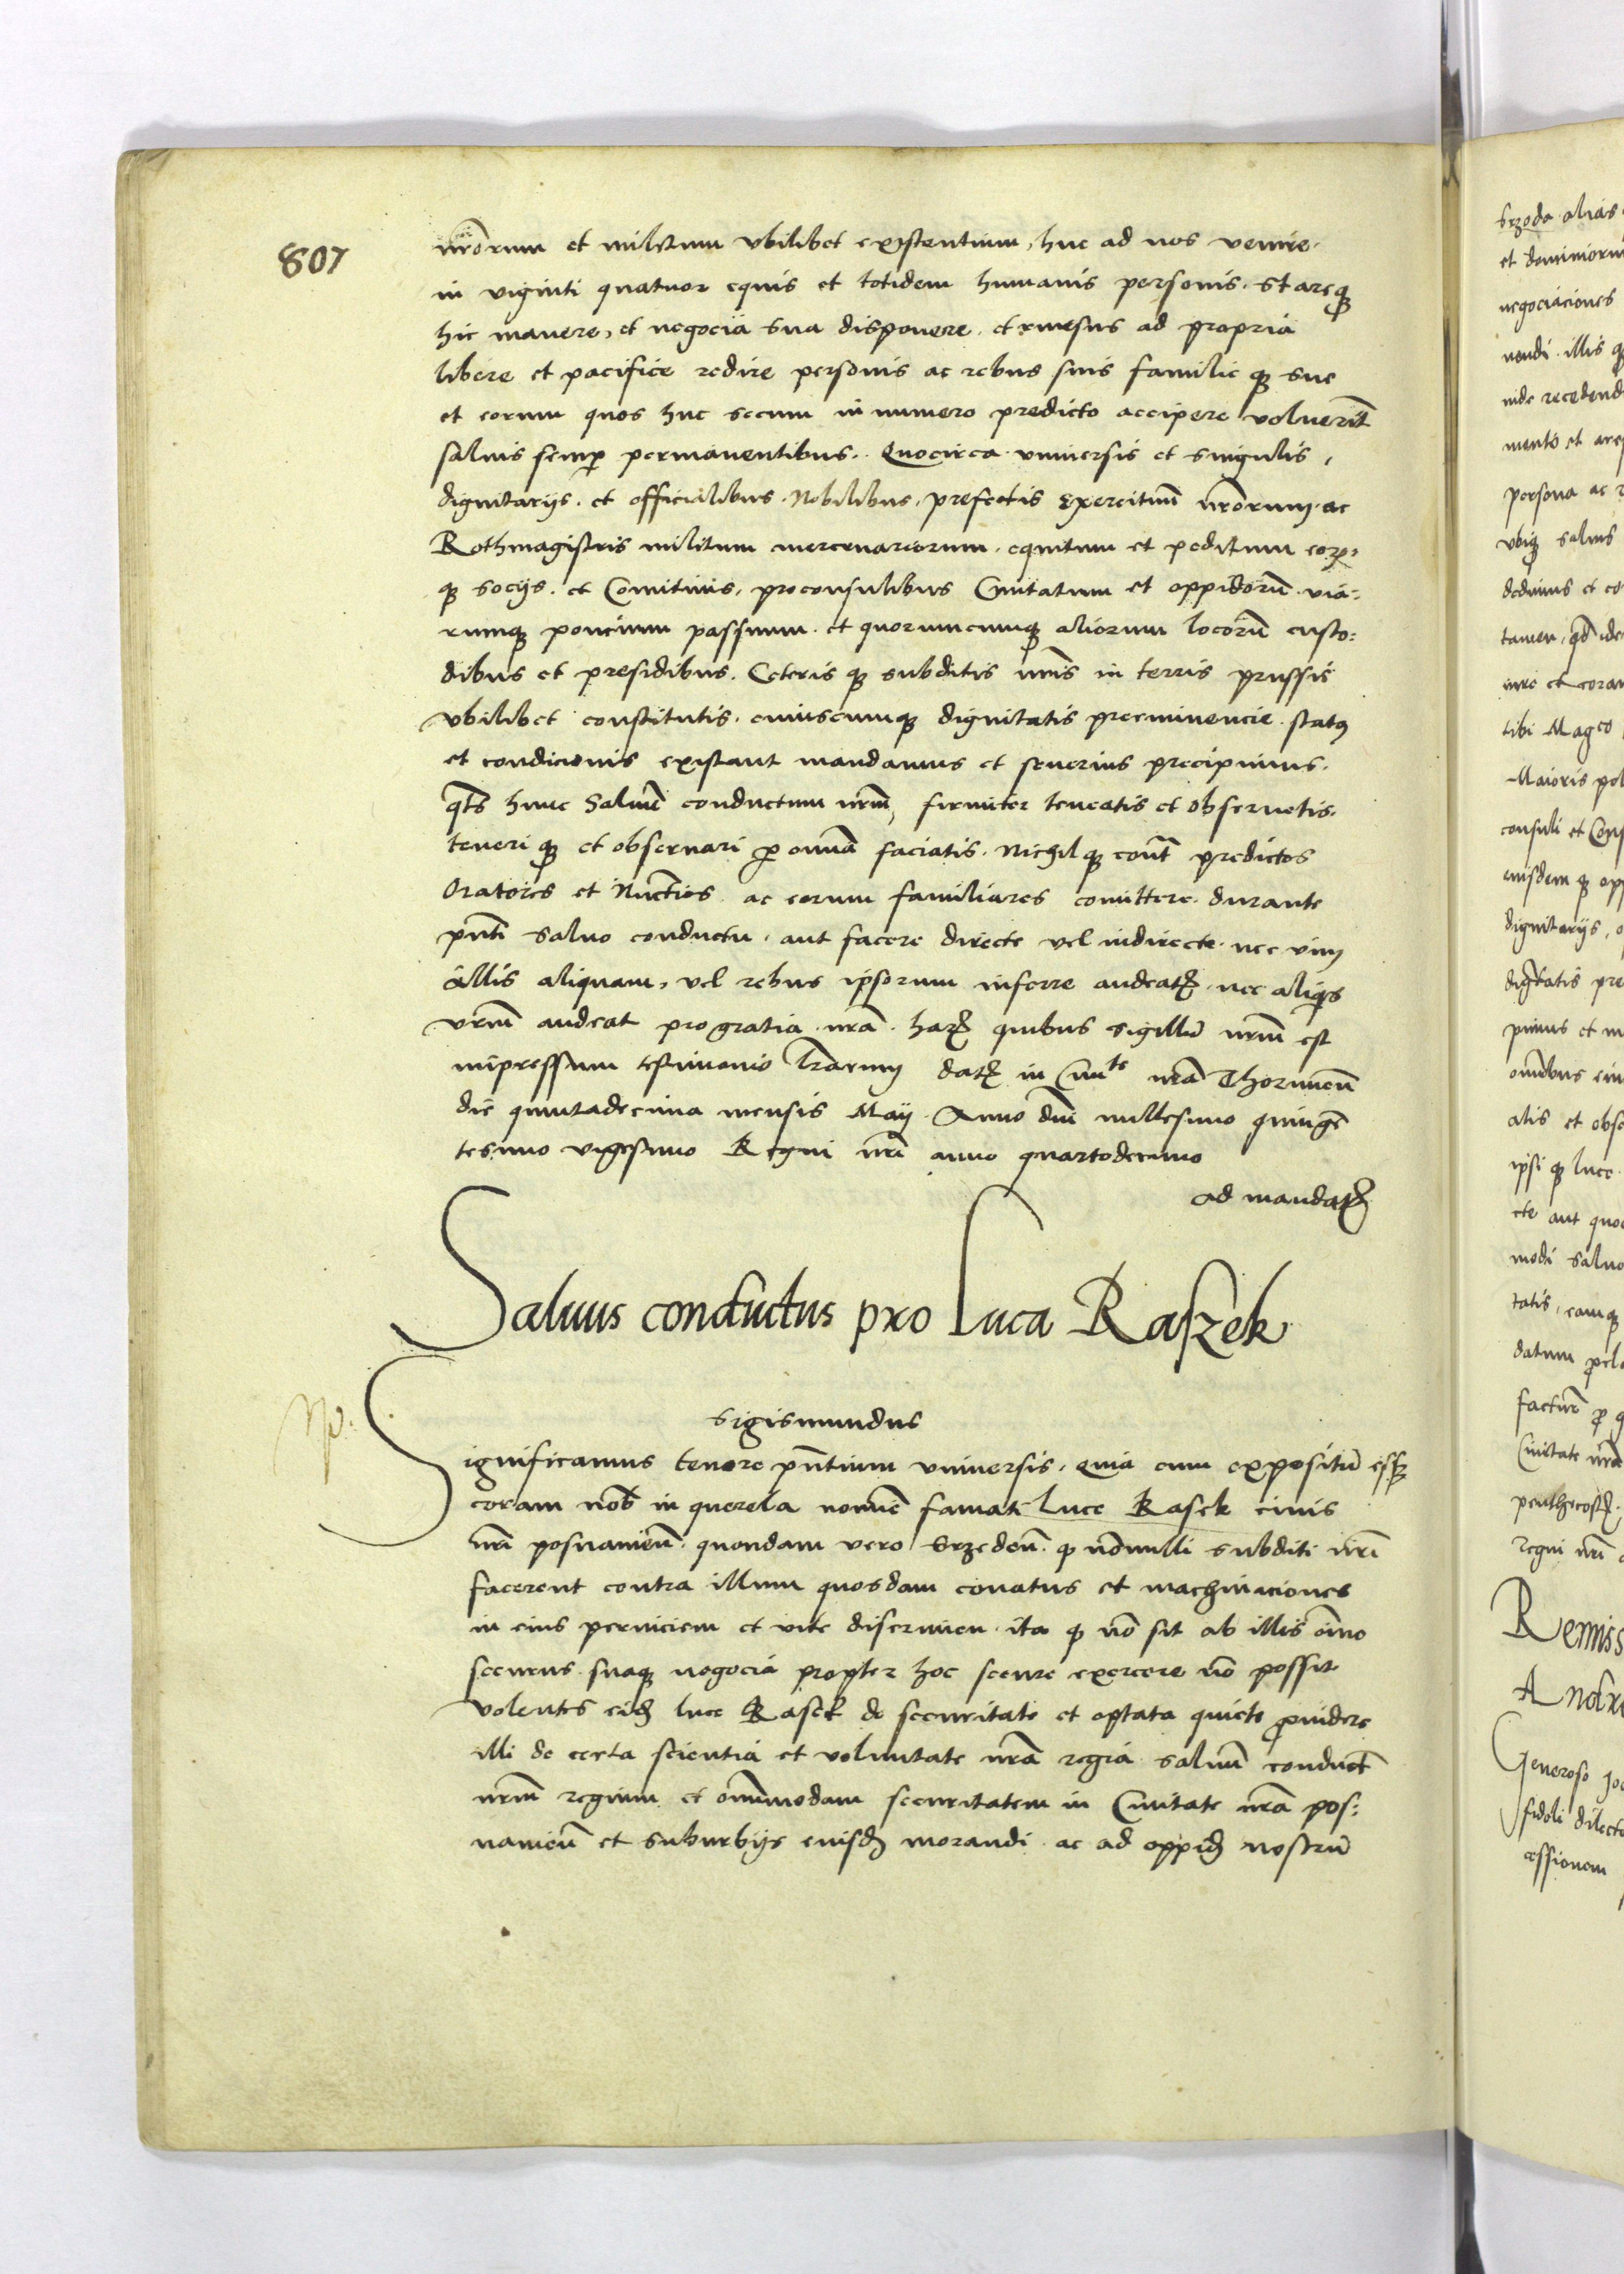 807
nr̃orum et militum vbilibet existentium, huc ad nos venire.
in viginti quatuor equis et totidem humanis personis. Stareq3
hic manere, et negocia sua disponere. et rursus ad propria
libere et pacifice redire personis ac rebus suis familie q3 sue
et eorum quos huc secum in numero predicto accipere voluerīt
saluis semp permanentibus. Quocirca vniuersis et singulis,
dignitarijs. et officialibus. Nobilibus. prefectis exercituū nr̃orum. ac
Rothmagistris militum mercenariorum. equitum et peditum eorꝝ:
q3 socijs. et Comitiuis, proconsulibus Ciuitatum et oppidorū. via:
rumq3 poncium passuum. et quorumcumq3 aliorum locorū custo:
dibus et presidibus. Ceteris q3 subditis nr̃is in terris prussie
vbilibet constitutis. cuiuscumq3 dignitatis preeminencie. status
et condicionis existant mandamus et seuerius precipimus.
qts hunc Saluū conductum nr̃m, firmiter teneatis et obseruetis.
teneri q3 et obseruari ꝑ omnia faciatis. Nichil q3 cont̄ predictos
Oratores et Nuctios ac eorum familiares comittere. durante
pn̄ti saluo conductu. aut facere directe vel indirecte. nec vim
illis aliquam, vel rebus ipsorum inferre audeat. nec aliqis
vr̃m audeat pro gratia nr̃a. harꝝ quibus sigillū nr̃m est
impressum testimonio lr̃arum dat in Ciuite nr̃a Thorunen̄
die quintadecima mensis Maij. Anno dn̄i millesimo quingē
tesimo vigesimo Regni nr̃i anno quartodecimo
ad mandat
Saluus conductus pro Luca Raszek
Sigismundus
Significamus tenore pn̄tium vniuersis. Quia cum expositū essz
coram nob̄ in querela nomīe famati Luce Rasek ciuis
nr̃i posnanien̄. quondam vero Srzeden̄. q nōnulli subditi nr̃i
facerent contra illum quosdam conatus et machinaciones
in eius perniciem et vite discrimen. ita q nō sit ab illis oīno
securus. suaq3 negocia propter hoc secure exercere nō possit
volentes eid luce Rasek de securitate et optata quiete ꝓuidere
illi de certa scientia et voluntate nr̃a regia saluū conduct̄
nr̃m regium et omnimodam securitatem in Ciuitate nr̃a pos:
nanien̄ et suburbijs eiusd morandi. ac ad oppid nostrū
Srzoda alias
negociaciones
nendi. illis
inde recedend
persona ac
vbiq3 saluus
dedimus et co
tibi Mag̃co
Maioris pol
consuli et Cons
eiusdem q3 opp
dignitarijs,
ipsi q3 luce
cte aut quo
modi saluo
tatis, eamq3
Ciuitate nr̃a
regni nr̃i
Remiss
Andre
Generoso Jo
fideli dilecto
cessionem